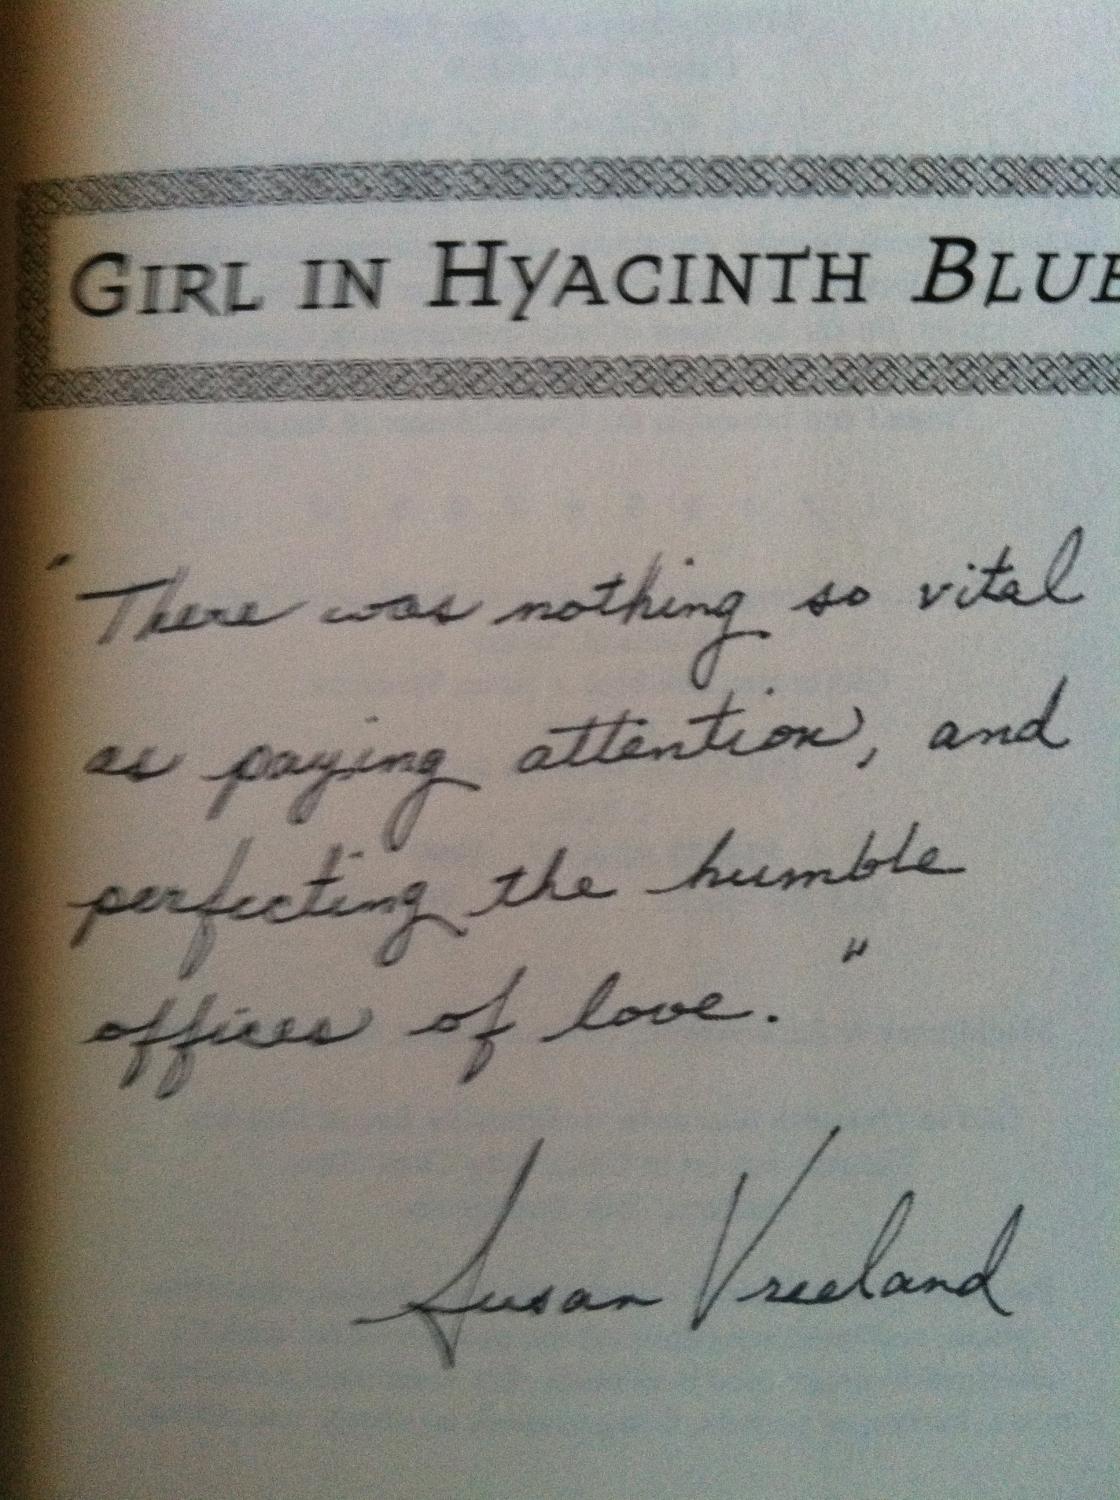 GIRL IN HYACINTH BLUE
"There was nothing so vital
as paying attention, and
perfecting the humble
offices of love."
Susan Vreeland